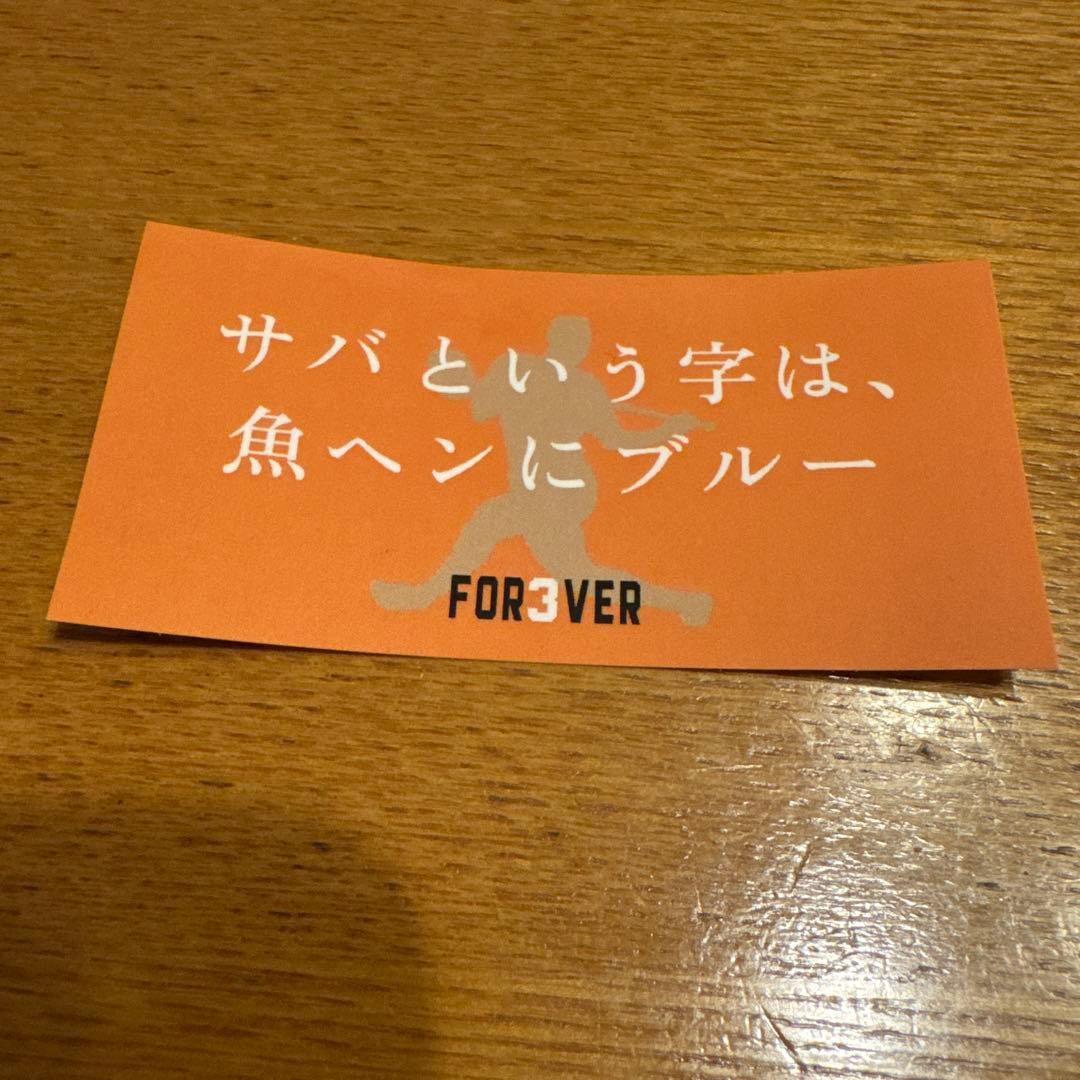 サバという字は、
魚ヘンにブルー
FOR3VER